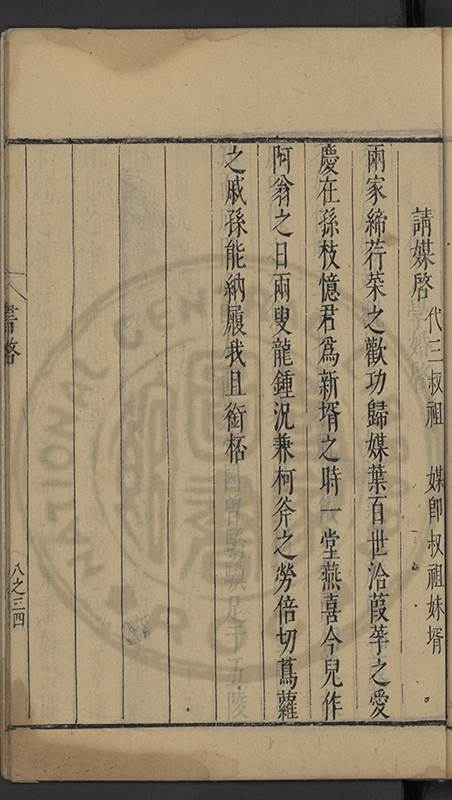 請媒啓 代三叔祖 媒卽叔祖妹壻
兩家締荇菜之歡功歸媒葉百世洽葭莩之愛
慶在孫枝憶君爲新壻之時一堂燕喜今兒作
阿翁之日兩叟龍鍾況兼柯斧之勞倍切蔦蘿
之戚孫能納履我且銜桮
書啓
八之三四